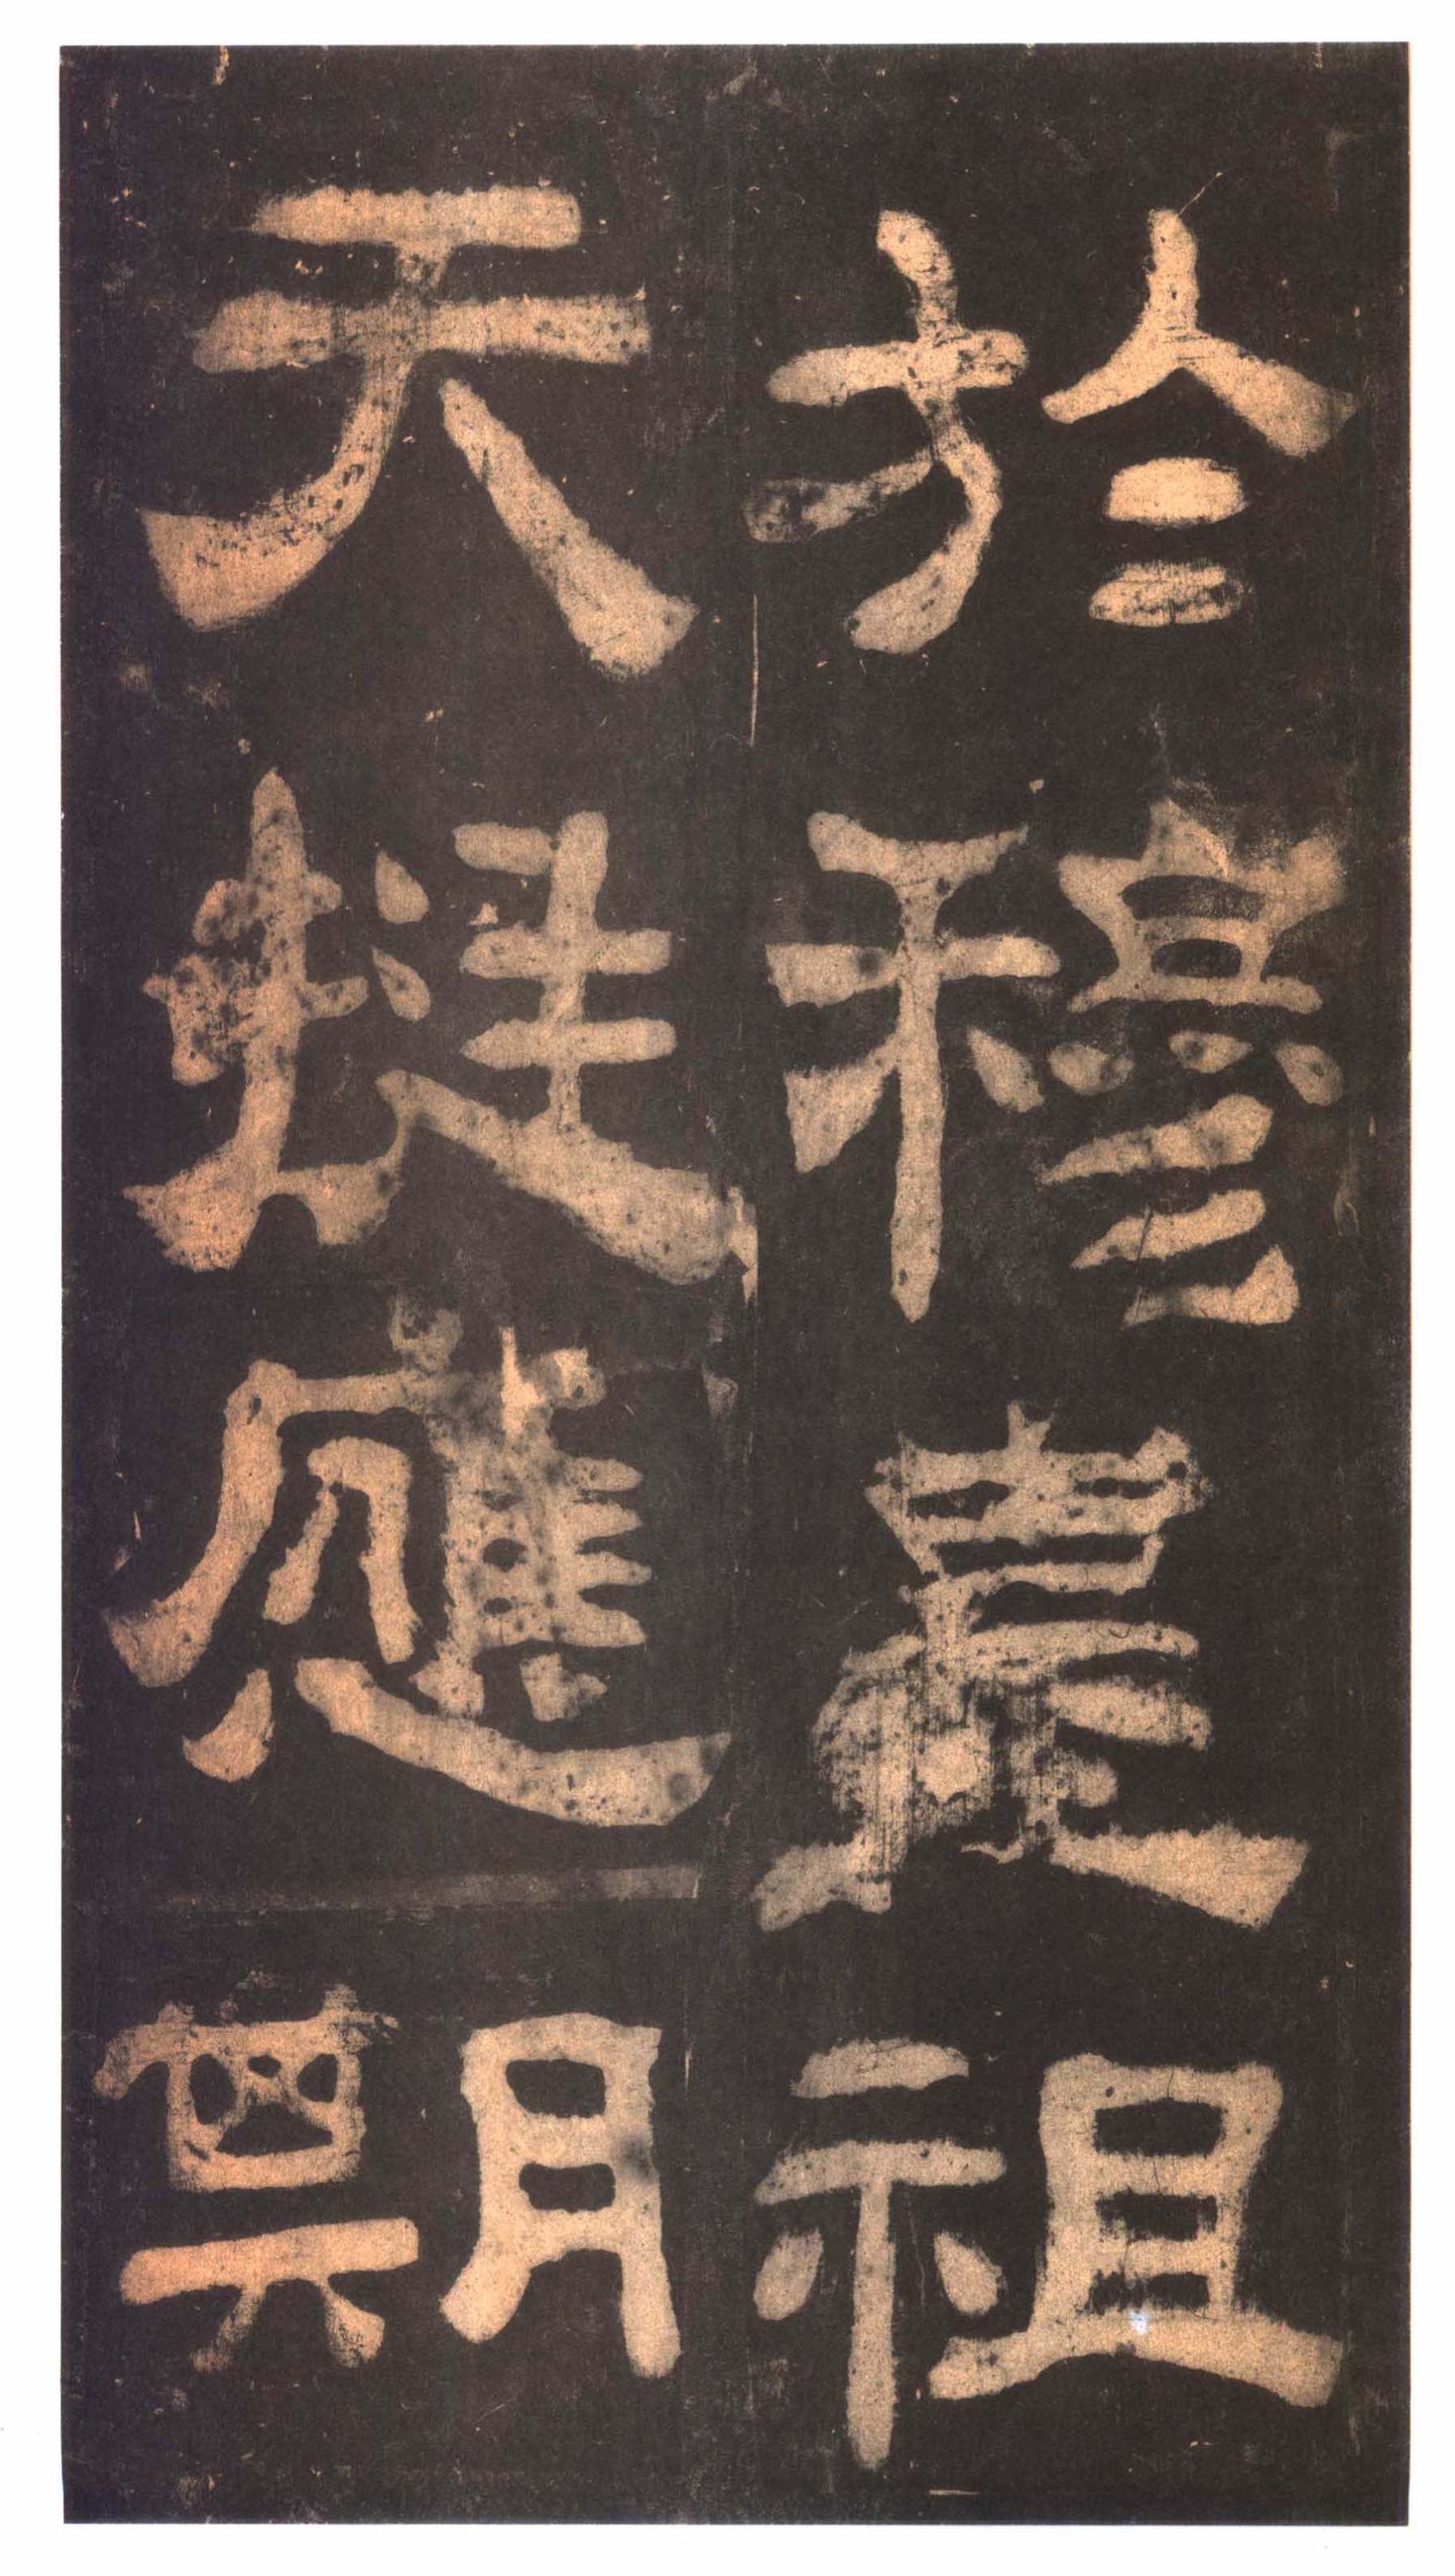 於穆祖
天挺應期